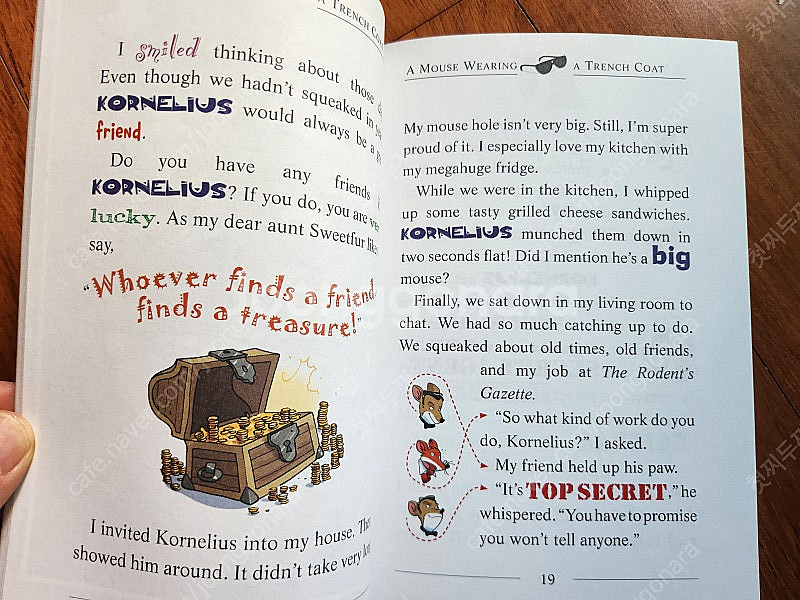 A TRENCH COAT
I smiled thinking about those
Even though we hadn't squeaked in
KORNELIUS would always be a
friend.
Do you have any friends
KORNELIUS? If you do, you are
lucky. As my dear aunt Sweetfur
say,
"Whoever finds a friend
finds a treasure!"
I invited Kornelius into my house.
showed him around. It didn't take very
A MOUSE WEARING A TRENCH COAT
My mouse hole isn't very big. Still, I'm super
proud of it. I especially love my kitchen with
my megahuge fridge.
While we were in the kitchen, I whipped
up some tasty grilled cheese sandwiches.
KORNELIUS munched them down in
two seconds flat! Did I mention he's a big
mouse?
Finally, we sat down in my living room to
chat. We had so much catching up to do.
We squeaked about old times, old friends,
and my job at The Rodent's
Gazette.
"So what kind of work do you
do, Kornelius?" I asked.
My friend held up his paw.
"It's TOP SECRET," he
whispered. "You have to promise
you won't tell anyone."
19